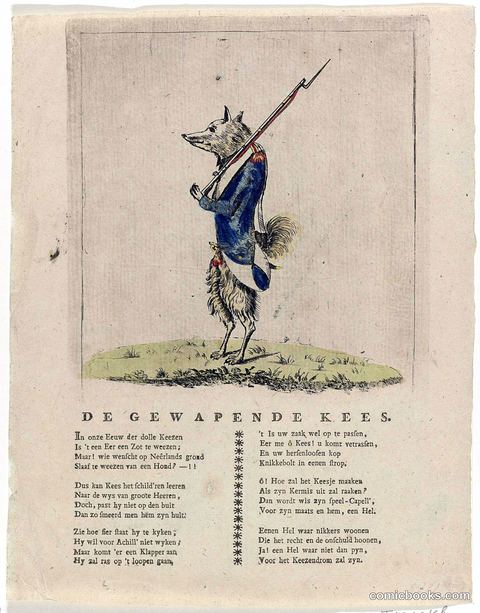 DE GEWAPENDE KEES.
In onze Eeuw der dolle Keezen
Is 't een Eer een Zot te weezen;
Maar! wie wenscht op Neêrlands grond
Slaaf te weezen van een Hond? —!!
Dus kan Kees het schild'ren leeren
Naar de wys van groote Heeren,
Doch, past hy niet op den buit
Dan zo smeerd men hem zyn huit.
Zie hoe fier staat hy te kyken,
Hy wil voor Achill' niet wyken;
Maar komt 'er een Klapper aan
Hy zal ras op 't loopen gaan,
't Is uw zaak wel op te passen,
Eer me ô Kees! u komt verrassen,
En uw hersenloosen kop
Knikkebolt in eenen strop.
ô! Hoe zal het Keesje maaken
Als zyn Kermis uit zal raaken?
Dan wordt wis zyn speel-Capell',
Voor zyn maats en hem, een Hel.
Eenen Hel waar nikkers woonen
Die het recht en de onschuld hoonen,
Ja! een Hel waar niet dan pyn,
Voor het Keezendrom zal zyn.
comicbooks.com